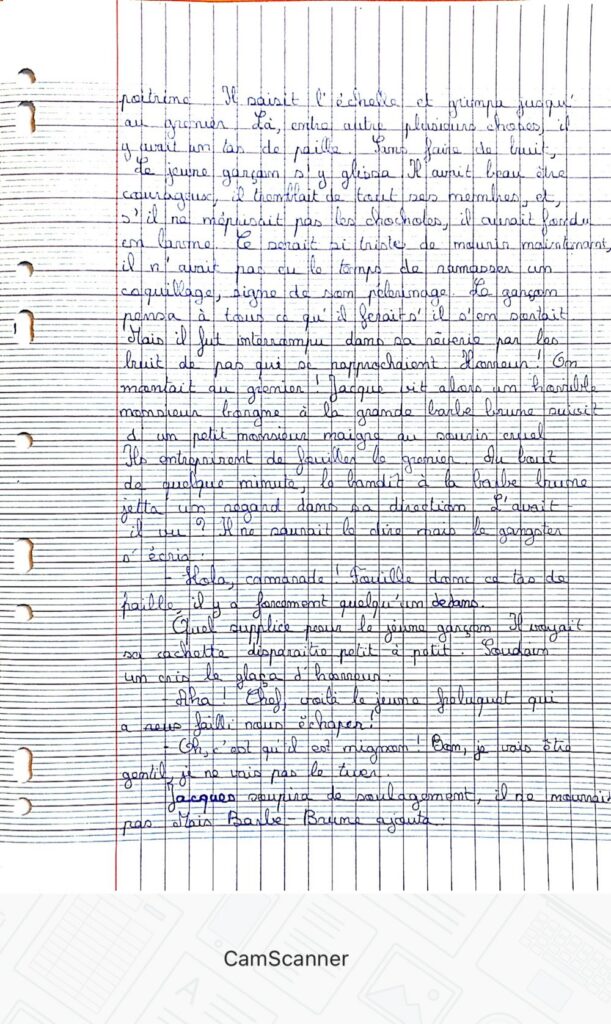 poitrine. Il saisit l'échelle et grimpa jusqu'
au grenier. Là, entre autre plusieurs choses, il
y avait un tas de paille. Sans faire de bruit,
Le jeune garçon s'y glissa. Il avait beau être
courageux, il tremblait de tout ses membres, et,
s'il ne méprisait pas les chochotes, il aurait fondu
en larme. Ce serait si triste de mourir maintenant,
il n'avait pas eu le temps de ramasser un
coquillage, signe de son pélerinage. Le garçon
pensa à tous ce qu'il ferait s'il s'en sortait
Mais il fut interrompu dans sa rêverie par les
bruit de pas qui se rapprochaient. Horreur! On
montait au grenier! Jacque vit alors un horrible
monsieur borgne à la grande barbe brune suivit
d'un petit monsieur maigre au sourir cruel
Ils entreprirent de fouiller le grenier. Au bout
de quelque minute, le bandit à la barbe brune
jetta un regard dans sa direction. L'avait
il vu? Il ne saurait le dire mais le gangster
s'écria:
- Hola, camarade! Fouille donc ce tas de
paille, il y a forcement quelqu'un dedans.
Quel supplice pour le jeune garçon. Il voyait
sa cachette disparaître petit à petit. Soudain
un cris le glaça d'horreur:
Aha! Chef, voilà le jeune freluquet qui
a failli nous échaper!
- Oh, c'est qu'il est mignon! Bon, je vais être
gentil, je ne vais pas le tuer.
Jacques soupira de soulagement, il ne mourrait
pas. Mais Barbe-Brune ajouta:
CamScanner